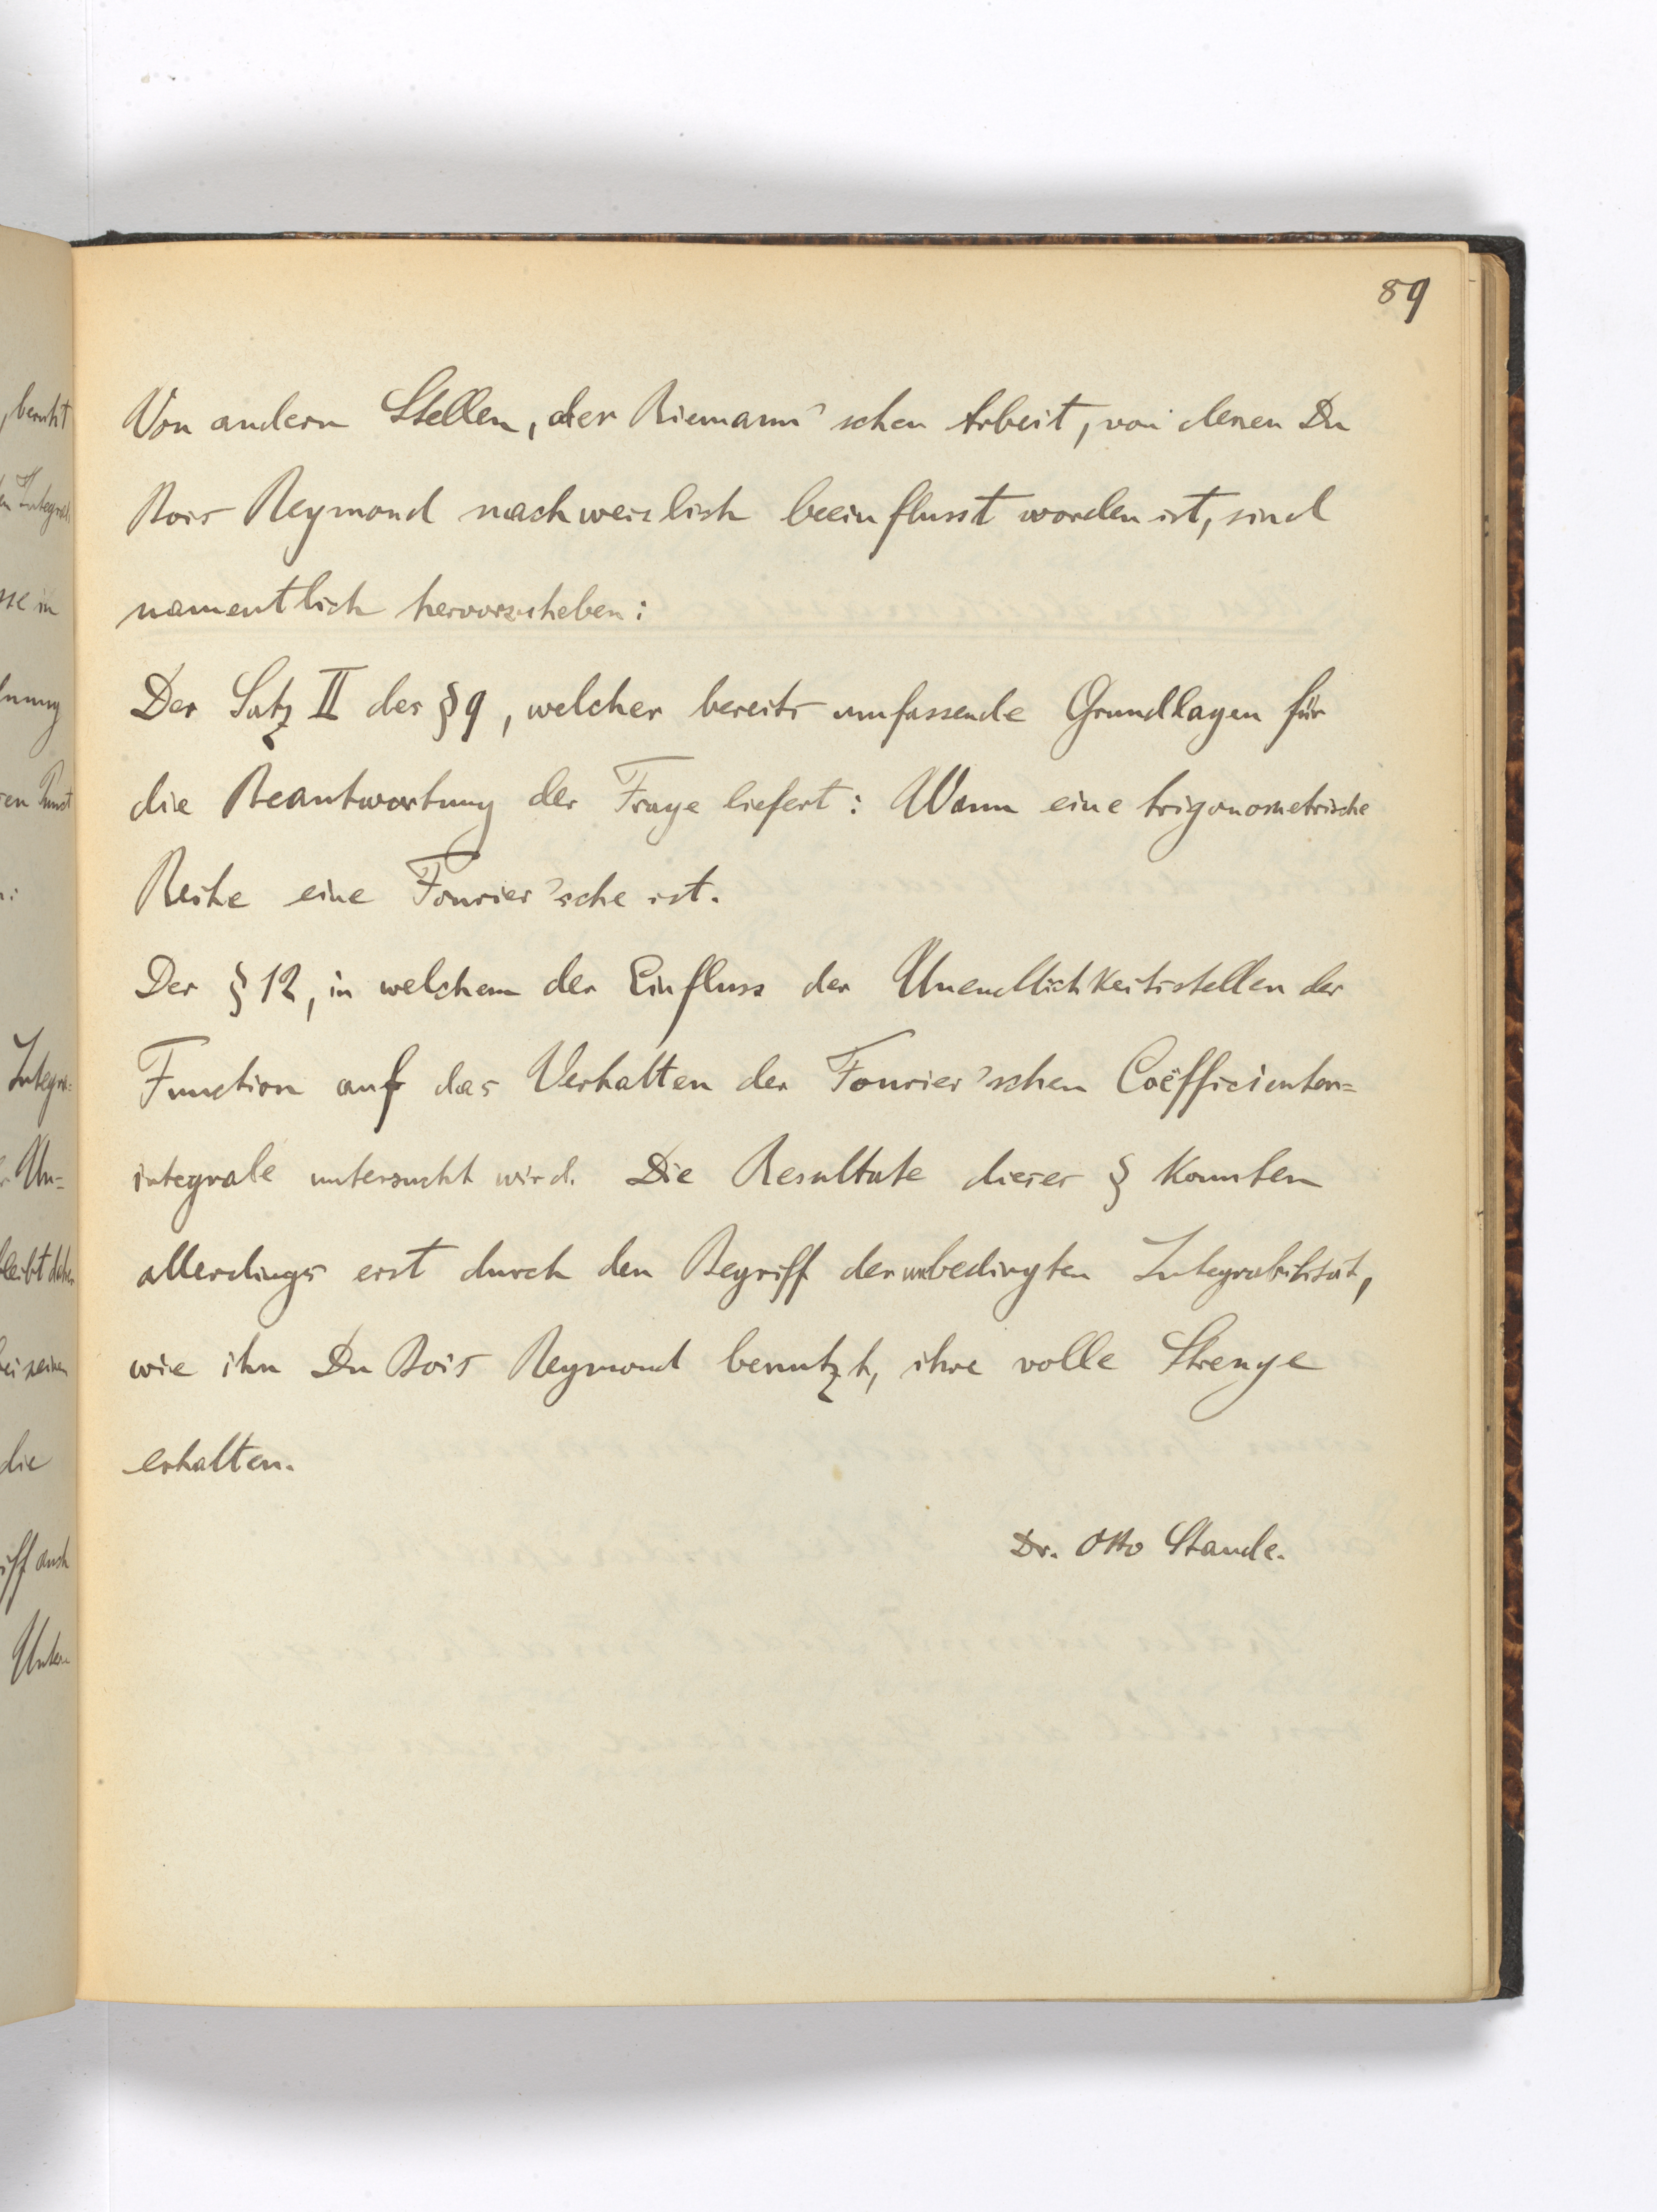 89
Von andern Stellen, der Riemann'schen Arbeit, von denen Du
Bois Reymond nachweislich beeinflusst worden ist, sind
namentlich hervorzuheben:
Der Satz II des §9, welcher bereits umfassende Grundlagen für
die Beantwortung der Frage liefert: Wann eine trigonometrische
Reihe eine Fourier'sche ist.
Der §12, in welchem der Einfluss der Unendlichkeitsstellen der
Function auf das Verhalten der Fourier'schen Coëfficienten=
integrale untersucht wird. Die Resultate dieses § konnten
allerdings erst durch den Begriff der unbedingten Integrabilität,
wie ihn Du Bois Reymond benutzt, ihre volle Strenge
erhalten.
Dr. Otto Staude.
beruht
sse in
Integra=
Un=
bleibt daher
bei seinen
die
iff auch